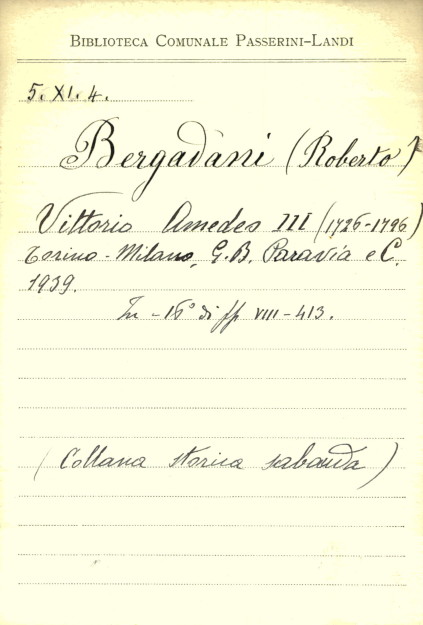 BIBLIOTECA COMUNALE PASSERINI-LANDI
5. XI. 4.
Bergadàni (Roberto)
Vittorio Amedeo III (1726-1796)
Torino - Milano, G. B. Paravia e C.
1939.
In - 16° di pp VIII - 413.
(Collana storica sabauda)